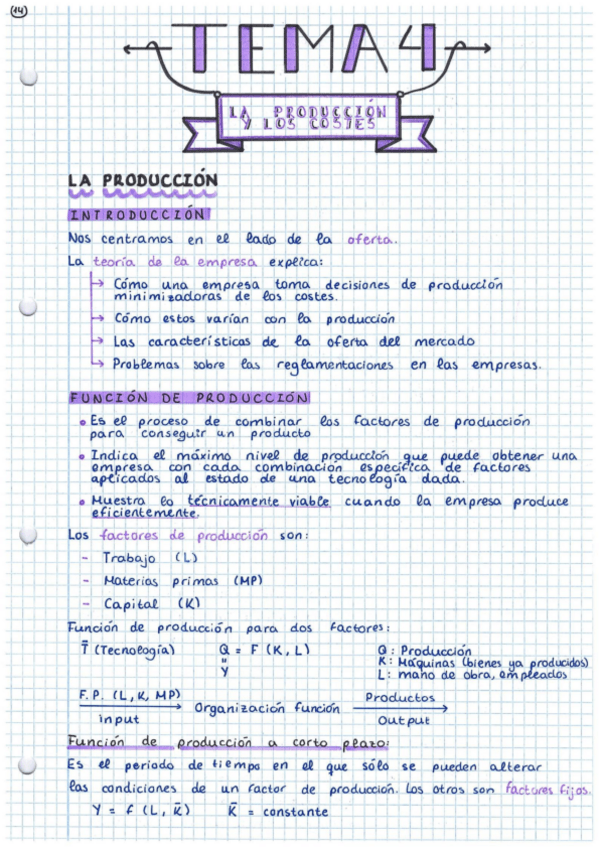 14
TEMA 4
LA PRODUCCIÓN
Y LOS COSTES
LA PRODUCCIÓN
INTRODUCCIÓN
Nos centramos en el lado de la oferta.
La teoría de la empresa explica:
→ Cómo una empresa toma decisiones de producción
minimizadoras de los costes.
→ Cómo estos varían con la producción
→ Las características de la oferta del mercado
→ Problemas sobre las reglamentaciones en las empresas.
FUNCIÓN DE PRODUCCIÓN
• Es el proceso de combinar los factores de producción
para conseguir un producto
• Indica el máximo nivel de producción que puede obtener una
empresa con cada combinación específica de factores
aplicados al estado de una tecnología dada.
• Muestra lo técnicamente viable cuando la empresa produce
eficientemente.
Los factores de producción son:
- Trabajo (L)
- Materias primas (MP)
- Capital (K)
Función de producción para dos factores:
T̄ (Tecnología) Q = F (K, L) Q: Producción
" K: Máquinas (bienes ya producidos)
Y L: mano de obra, empleados
F.P. (L, K, MP) Organización función Productos
input Output
Función de producción a corto plazo:
Es el periodo de tiempo en el que sólo se pueden alterar
las condiciones de un factor de producción. Los otros son factores fijos.
Y = f (L, K̄) K̄ = constante